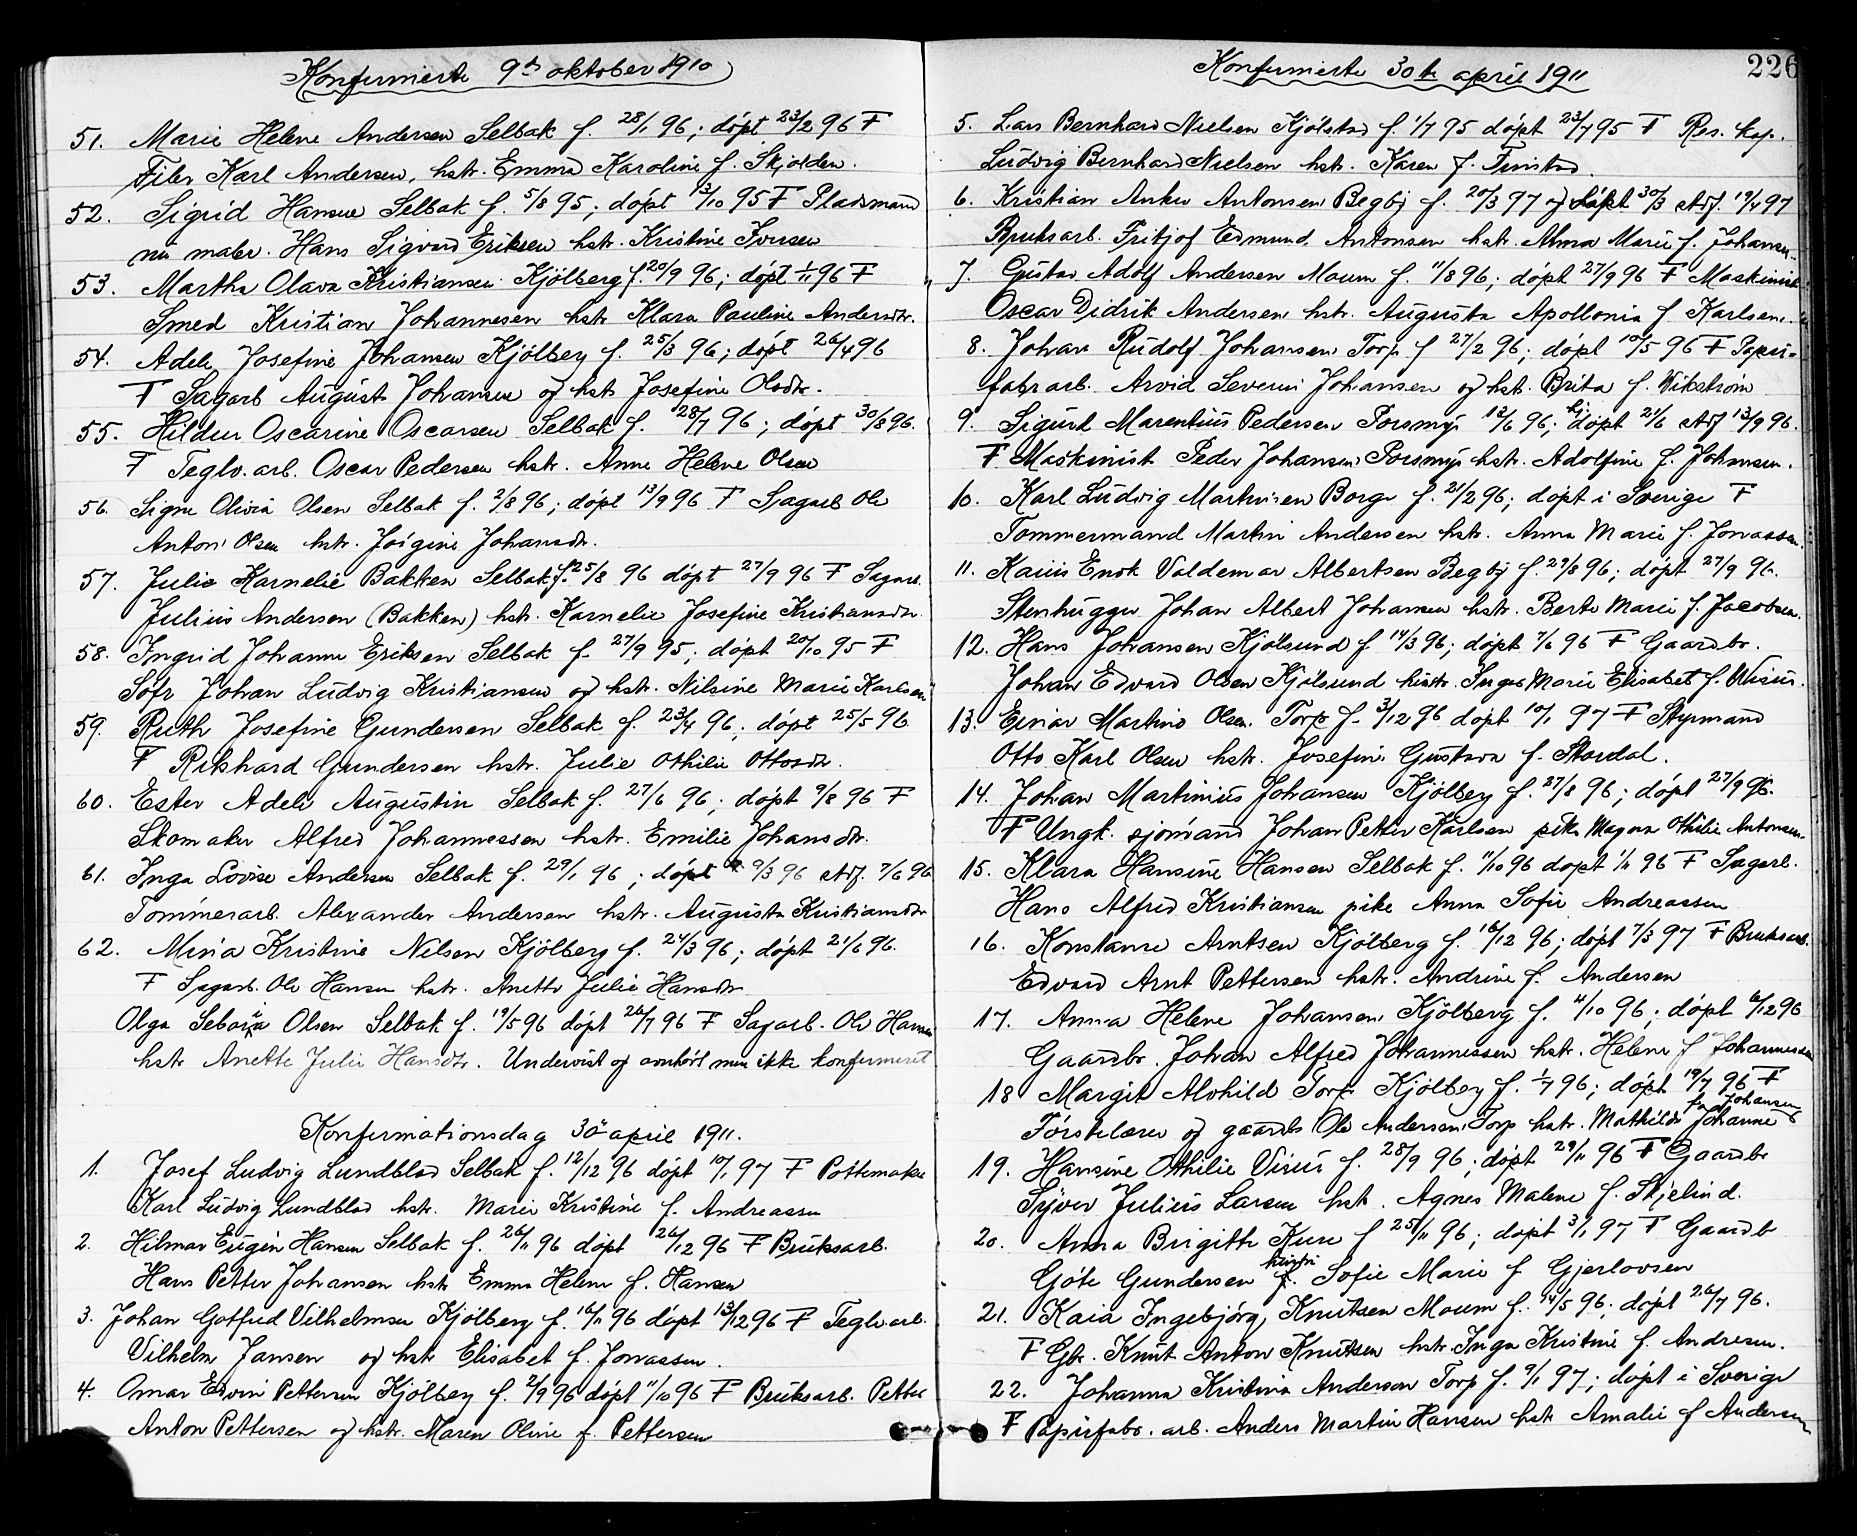 Konfirmerte 9de oktober 1910
51. Marie Helene Andersen Selbak f. 28/1 96; døpt 23/2 96 F
Filer Karl Andersen, hstr. Emma Karoline f. Skjolden.
52. Sigrid Hansen Selbak f. 5/8 95; døpt 13/10 95 F Pladsmand
nu maler. Hans Sigvard Eriksen hstr. Kristine Iversen
53. Martha Olava Kristiansen Kjölberg f. 20/9 96; døpt 1/11 96 F
Smed Kristian Johannesen hstr Klara Pauline Andersdtr.
54. Adele Josefine Johansen Kjölberg f. 25/3 96; døpt 26/4 96
F Sagarb August Johansen og hstr Josefine Olsdtr.
55. Hildur Oscarine Oscarsen Selbak f. 28/7 96; døpt 30/8 96.
F Teglv. arb. Oscar Pedersen hstr. Anne Helene Olsen
56. Signe Olivia Olsen Selbak f. 2/8 96; døpt 13/9 96 F Sagarb Ole
Anton Olsen hstr. Jörgine Johansdtr.
57. Julie Karnelie Bakken Selbak f. 25/8 96 døpt 27/9 96 F Sagarb.
Julius Andersen (Bakken) hstr. Karnelie Josefine Kristiansdtr.
58. Ingrid Johanne Eriksen Selbak f. 27/9 95; døpt 20/10 95 F
Söfr Johan Ludvig Kristiansen og hstr. Nilsine Marie Karlsen
59. Ruth Josefine Gundersen Selbak f. 23/4 96; døpt 25/5 96
F Rikhard Gundersen hstr. Julie Othilie Ottosdtr.
60. Ester Adele Augustin Selbak f. 27/6 96; døpt 9/8 96 F
Skomaker Alfred Johannessen hstr. Emilie Johansdtr.
61. Inga Lovise Andersen Selbak f. 29/1 96; døpt 9/3 96 stf. 7/6 96
Tømmerarb. Alexander Andersen hstr. Augusta Kristiansdtr
62. Mina Kristine Nilsen Kjölberg f. 24/3 96; døpt 21/6 96.
F Sagarb. Ole Hansen hstr. Anette Julie Hansdtr
Olga Seboria Olsen Selbak f. 19/5 96 døpt 26/7 96 F Sagarb. Ole Hansen
hstr Anette Julie Hansdtr. Undervist og overhört men ikke konfirmeret
Konfirmationsdag 30te april 1911.
1. Josef Ludvig Lundblad Selbak f. 12/12 96 døpt 10/1 97 F Pottemaker
Karl Ludvig Lundblad hstr. Marie Kristine f. Andreassen
2. Hilmar Eugen Hansen Selbak f. 26/11 96 døpt 26/12 96 F Bruksarb.
Hans Petter Johansen hstr Emma Helene f. Hansen
3. Johan Gotfred Vilhelmsen Kjölberg f. 16/11 96 døpt 13/12 96 F Teglv. arb.
Vilhelm Jansen og hstr Elisabet f. Jonassen.
4. Omar Edvin Pettersen Kjölberg f. 2/9 96 døpt 11/10 96 F Bruksarb. Petter
Anton Pettersen og hstr. Maren Oline f. Pettersen
Konfirmerte 30te april 1911
226
5. Lars Bernhard Nielsen Kjölstad f. 1/7 95 døpt 23/7 95 F Res. kap.
Ludvig Bernhard Nielsen hstr. Karen f. Finstad.
6. Kristian Anker Antonsen Begby f. 20/3 97 og døpt 30/3 stf. 19/4 97
Bruksarb. Fritjof Edmund Antonsen hstr. Alma Marie f. Johansen.
7. Gustav Adolf Andersen Moum f. 11/8 96; døpt 27/9 96 F Maskinist
Oscar Didrik Andersen hstr. Augusta Apollonia f Karlsen.
8. Johan Rudolf Johansen Torp f 27/2 96; døpt 10/5 96 F Papir-
fabr arb. Arvid Severin Johansen og hstr. Brita f. Vikström
9. Sigurd Marentius Pedersen Torsmyr 18/6 96; hj døpt 21/6 stf 13/9 96.
F Maskinist Peder Johansen Torsmyr hstr. Adolfine f. Johansen.
10. Karl Ludvig Martinsen Borge f. 21/2 96; døpt i Sverige F
Tømmermand Martin Andersen hstr. Anna Marie f. Jonassen.
11. Kaius Enok Valdemar Albertsen Begby f. 29/8 96; døpt 27/9 96.
Stenhugger Johan Albert Johansen hstr. Berte Marie f. Jacobsen.
12. Hans Johansen Kjölsund f 14/3 96; døpt 7/6 96 F Gaardbr.
Johan Edvard Olsen Kjölsund hustr. Inger Marie Elisabet f. Visur.
13. Einar Martin Olsen Torp f. 3/12 96 døpt 10/1 97 F Styrmand
Otto Karl Olsen hstr. Josefine Gustava f. Stordal.
14. Johan Martinius Johansen Kjölberg f. 27/8 96; døpt 27/9 96.
F Ungk. sjömand Johan Petter Karlsen pike Magna Othilie Antonsen.
15. Klara Hansine Hansen Selbak f. 11/10 96 døpt 1/11 96 F Sagarb.
Hans Alfred Kristiansen pike Anna Sofie Andreassen
16. Konstance Arntsen Kjölberg f. 16/12 96; døpt 7/3 97 F Bruksarb.
Edvard Arnt Pettersen hstr. Andrine f. Andersen
17. Anna Helene Johansen Kjölberg f. 11/10 96; døpt 6/12 96
Gaardbr. Johan Alfred Johannessen hstr. Helene f Johannessen
18 Margit Alvhild Torp Kjölberg f. 1/7 96; døpt 19/7 96 F
Förstelærer og gaardb Ole Andersen Torp hstr. Mathilde Johanne
f. Johansen
19. Hansine Othilie Visur f. 28/9 96; døpt 29/11 96 F Gaardbr
Syver Julius Larsen hstr. Agnes Malene f. Skjelind.
20. Anna Brigitte Kure f 25/11 96; døpt 3/1 97 F Gaardb
Göte Gundersen hustru Sofie Marie f Gjerlovsen
21. Kaia Ingebjörg Knutsen Moum f. 14/5 96; døpt 26/7 96.
F Gbr. Knut Anton Knutsen hstr. Inga Kristine f. Andresen.
22. Johanna Kristina Anderson Torp f. 9/1 97; døpt i Sverige
F Papirfabr. arb. Anders Martin Hansen hstr Amalie f Andersen